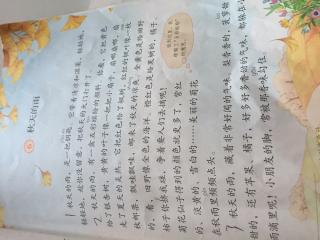 秋天的雨
1 秋天的雨，是一把钥匙。它带着清凉和温柔，轻轻地，
轻轻地，趁你没留意，把秋天的大门打开了。
2 秋天的雨，有一盒五彩缤纷的颜料。你看，它把黄色
给了银杏树，黄黄的叶子像一把把小扇子，扇哪扇哪，扇
走了夏天的炎热。它把红色给了枫树，红红的枫叶像一枚
枚邮票，飘哇飘哇，邮来了秋天的凉爽。金黄色是给田野
的，看，田野像金色的海洋。橙红色是给果树的，橘子、
柿子你挤我碰，争着要人们去摘呢！
菊花仙子得到的颜色就更多了，紫红
的、淡黄的、雪白的……美丽的菊花
在秋雨里频频点头。
3 秋天的雨，藏着非常好闻的气味。梨香香的，菠萝甜
甜的，还有苹果、橘子，好多好多香甜的气味，都躲在小
雨滴里呢！小朋友的脚，常被那香味勾住。